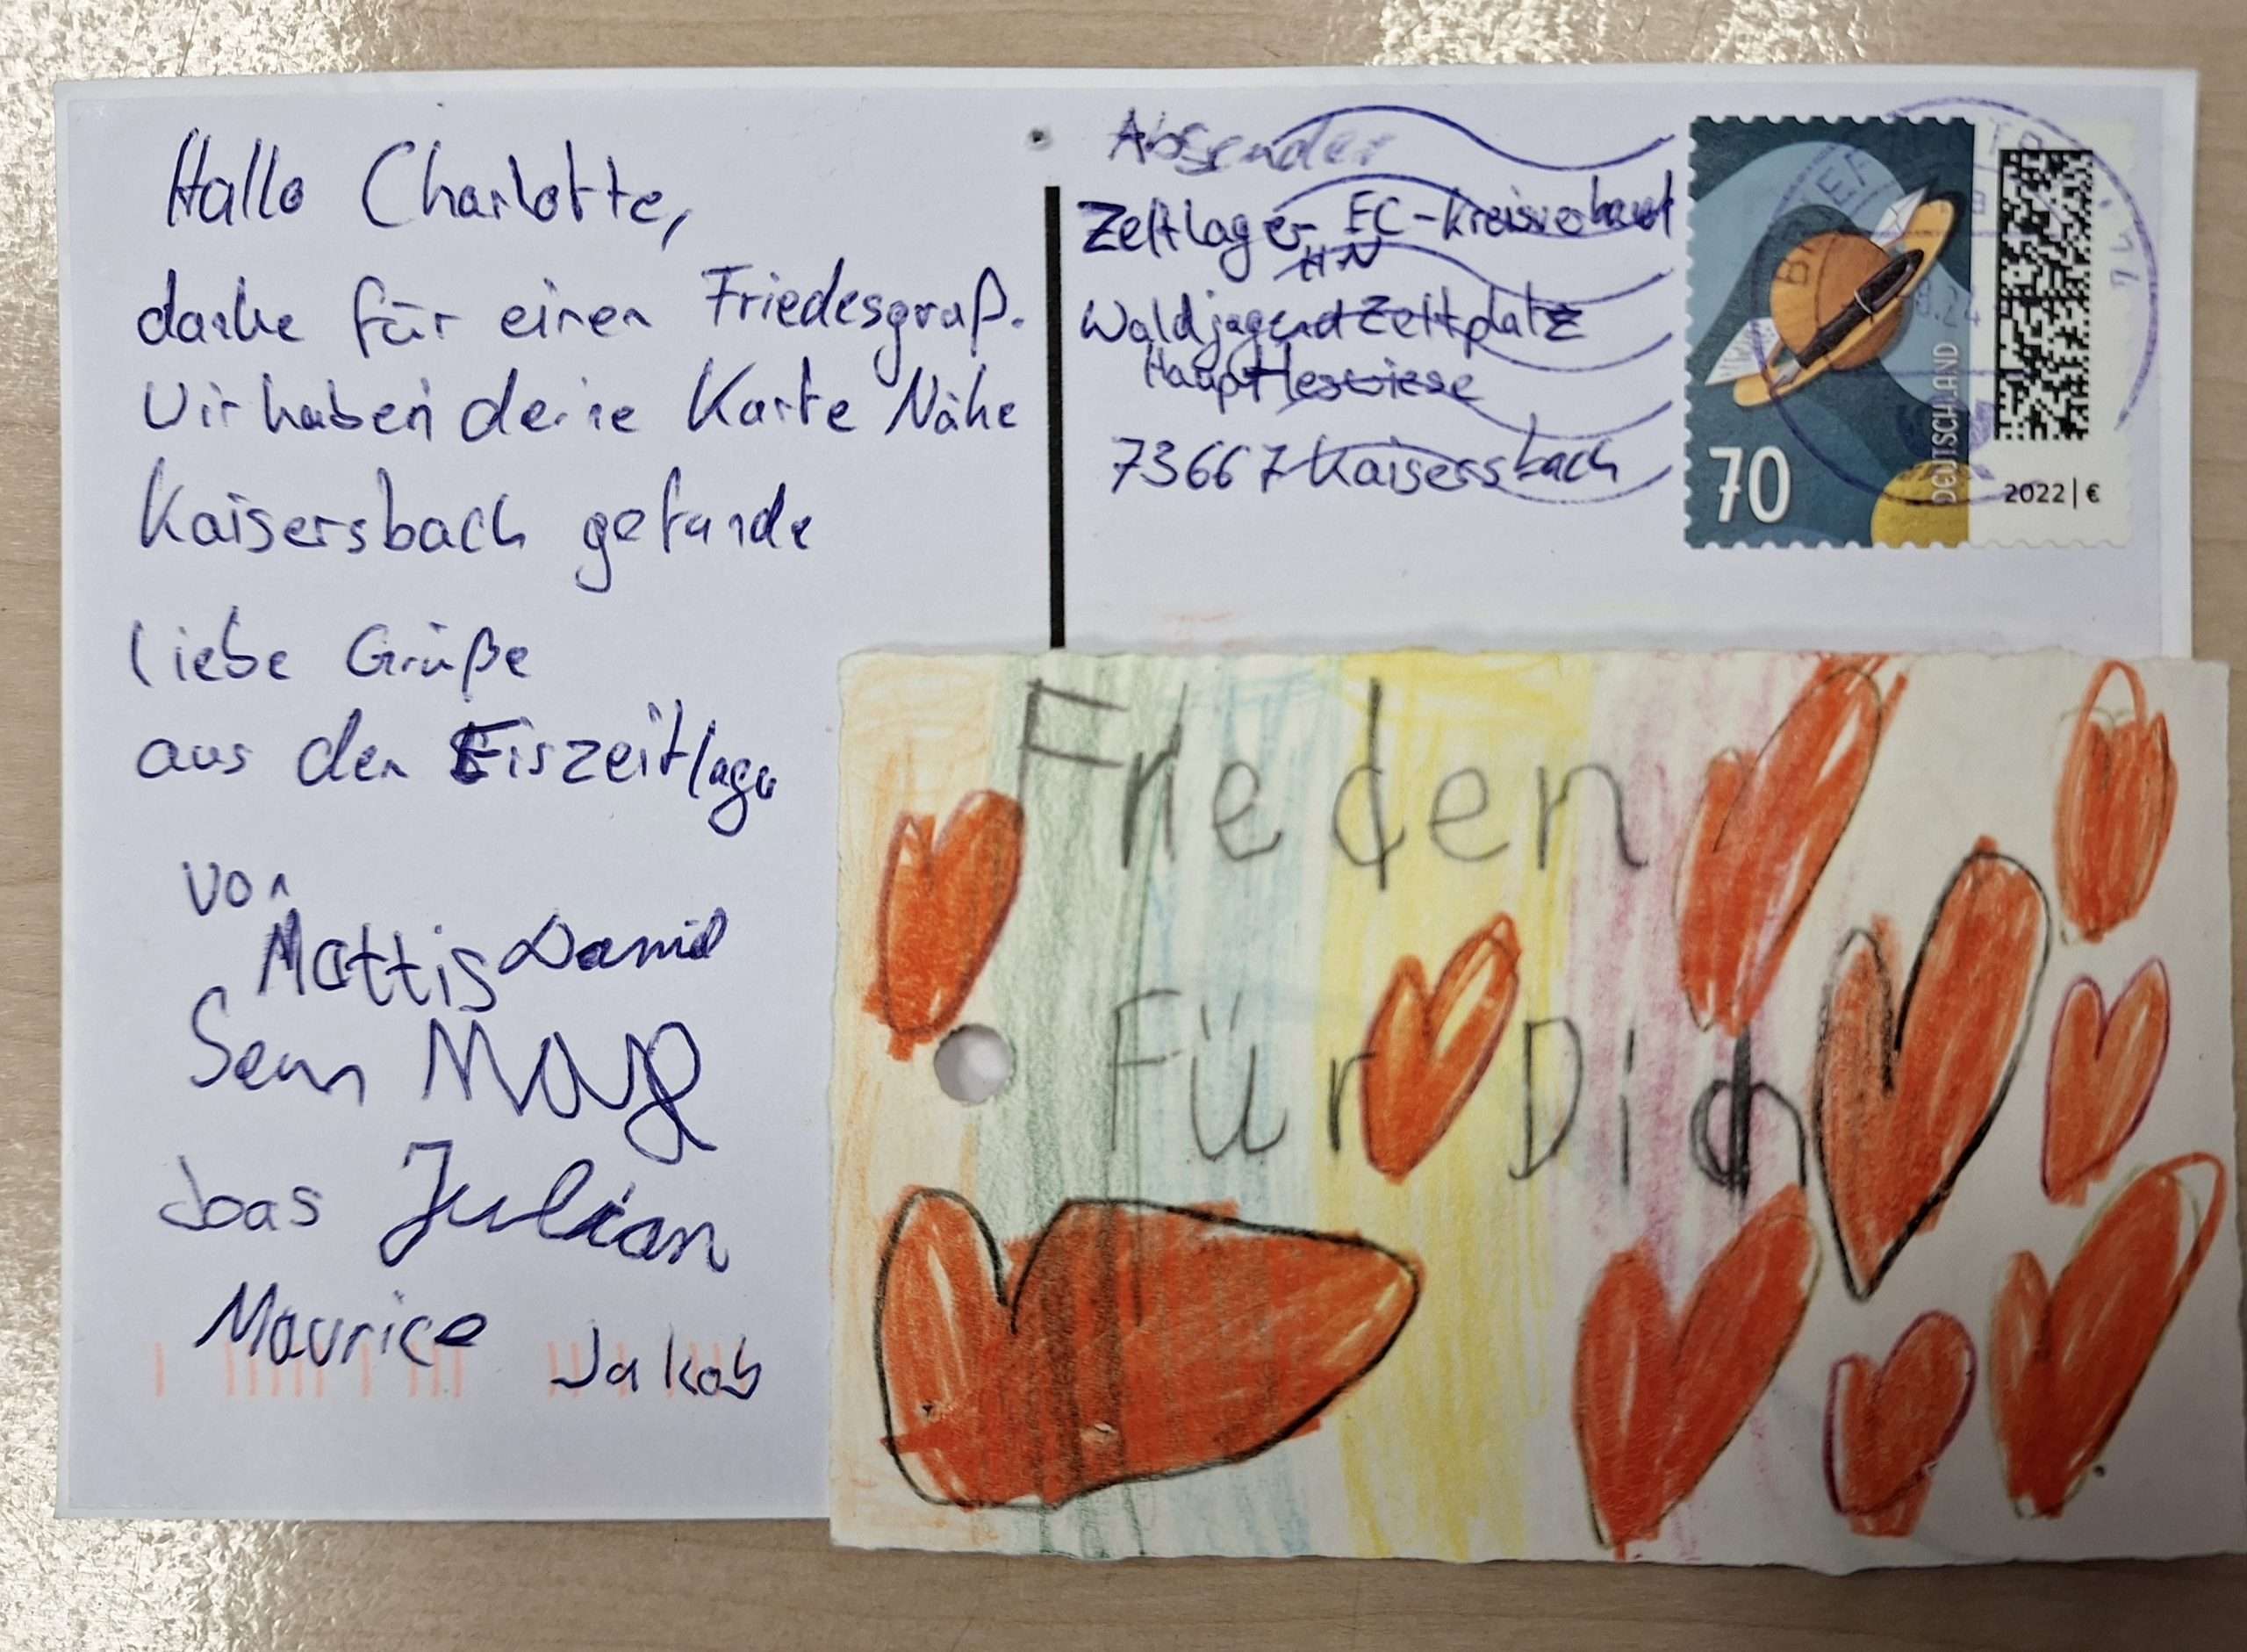 Hallo Charlotte,
danke für einen Friedesgruß.
Wir haben deine Karte Nähe
Kaisersbach gefunde
liebe Grüße
aus den Eiszeitlager
von
Mattis Daniel
Sem
Joas Julian
Maurice Jakob
Absender
Zeltlager EC-Kreisverband
HN
Waldjugendzeltplatz
Hauptleswiese
73667 Kaisersbach
70
DEUTSCHLAND
2022 | €
Frieden
Für Dich